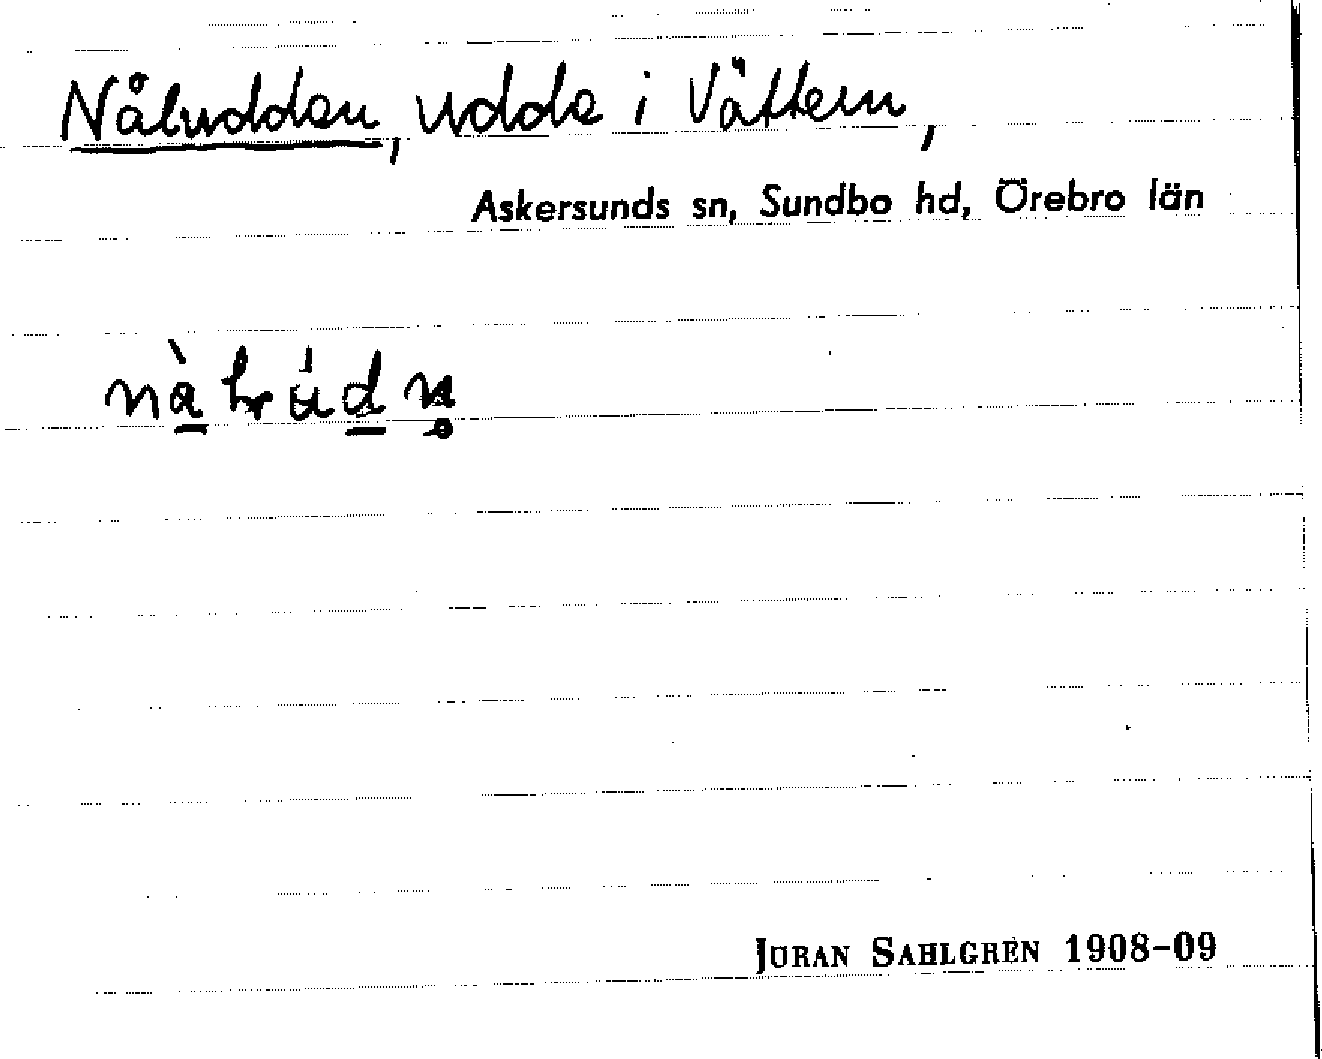 Nåludden, udde i Vättern,
Askersunds sn, Sundbo hd, Örebro län
JÖRAN SAHLGREN 1908-09